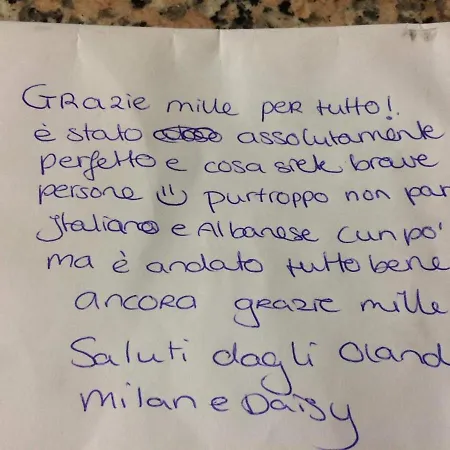 GRazie mille per tutto!
è stato assolutamente
perfetto e cosa siete brave
persone ☺ purtroppo non par
Italiano e Albanese (un po'
ma è andato tutto bene
ancora grazie mille
Saluti dagli Oland
Milan e Daisy